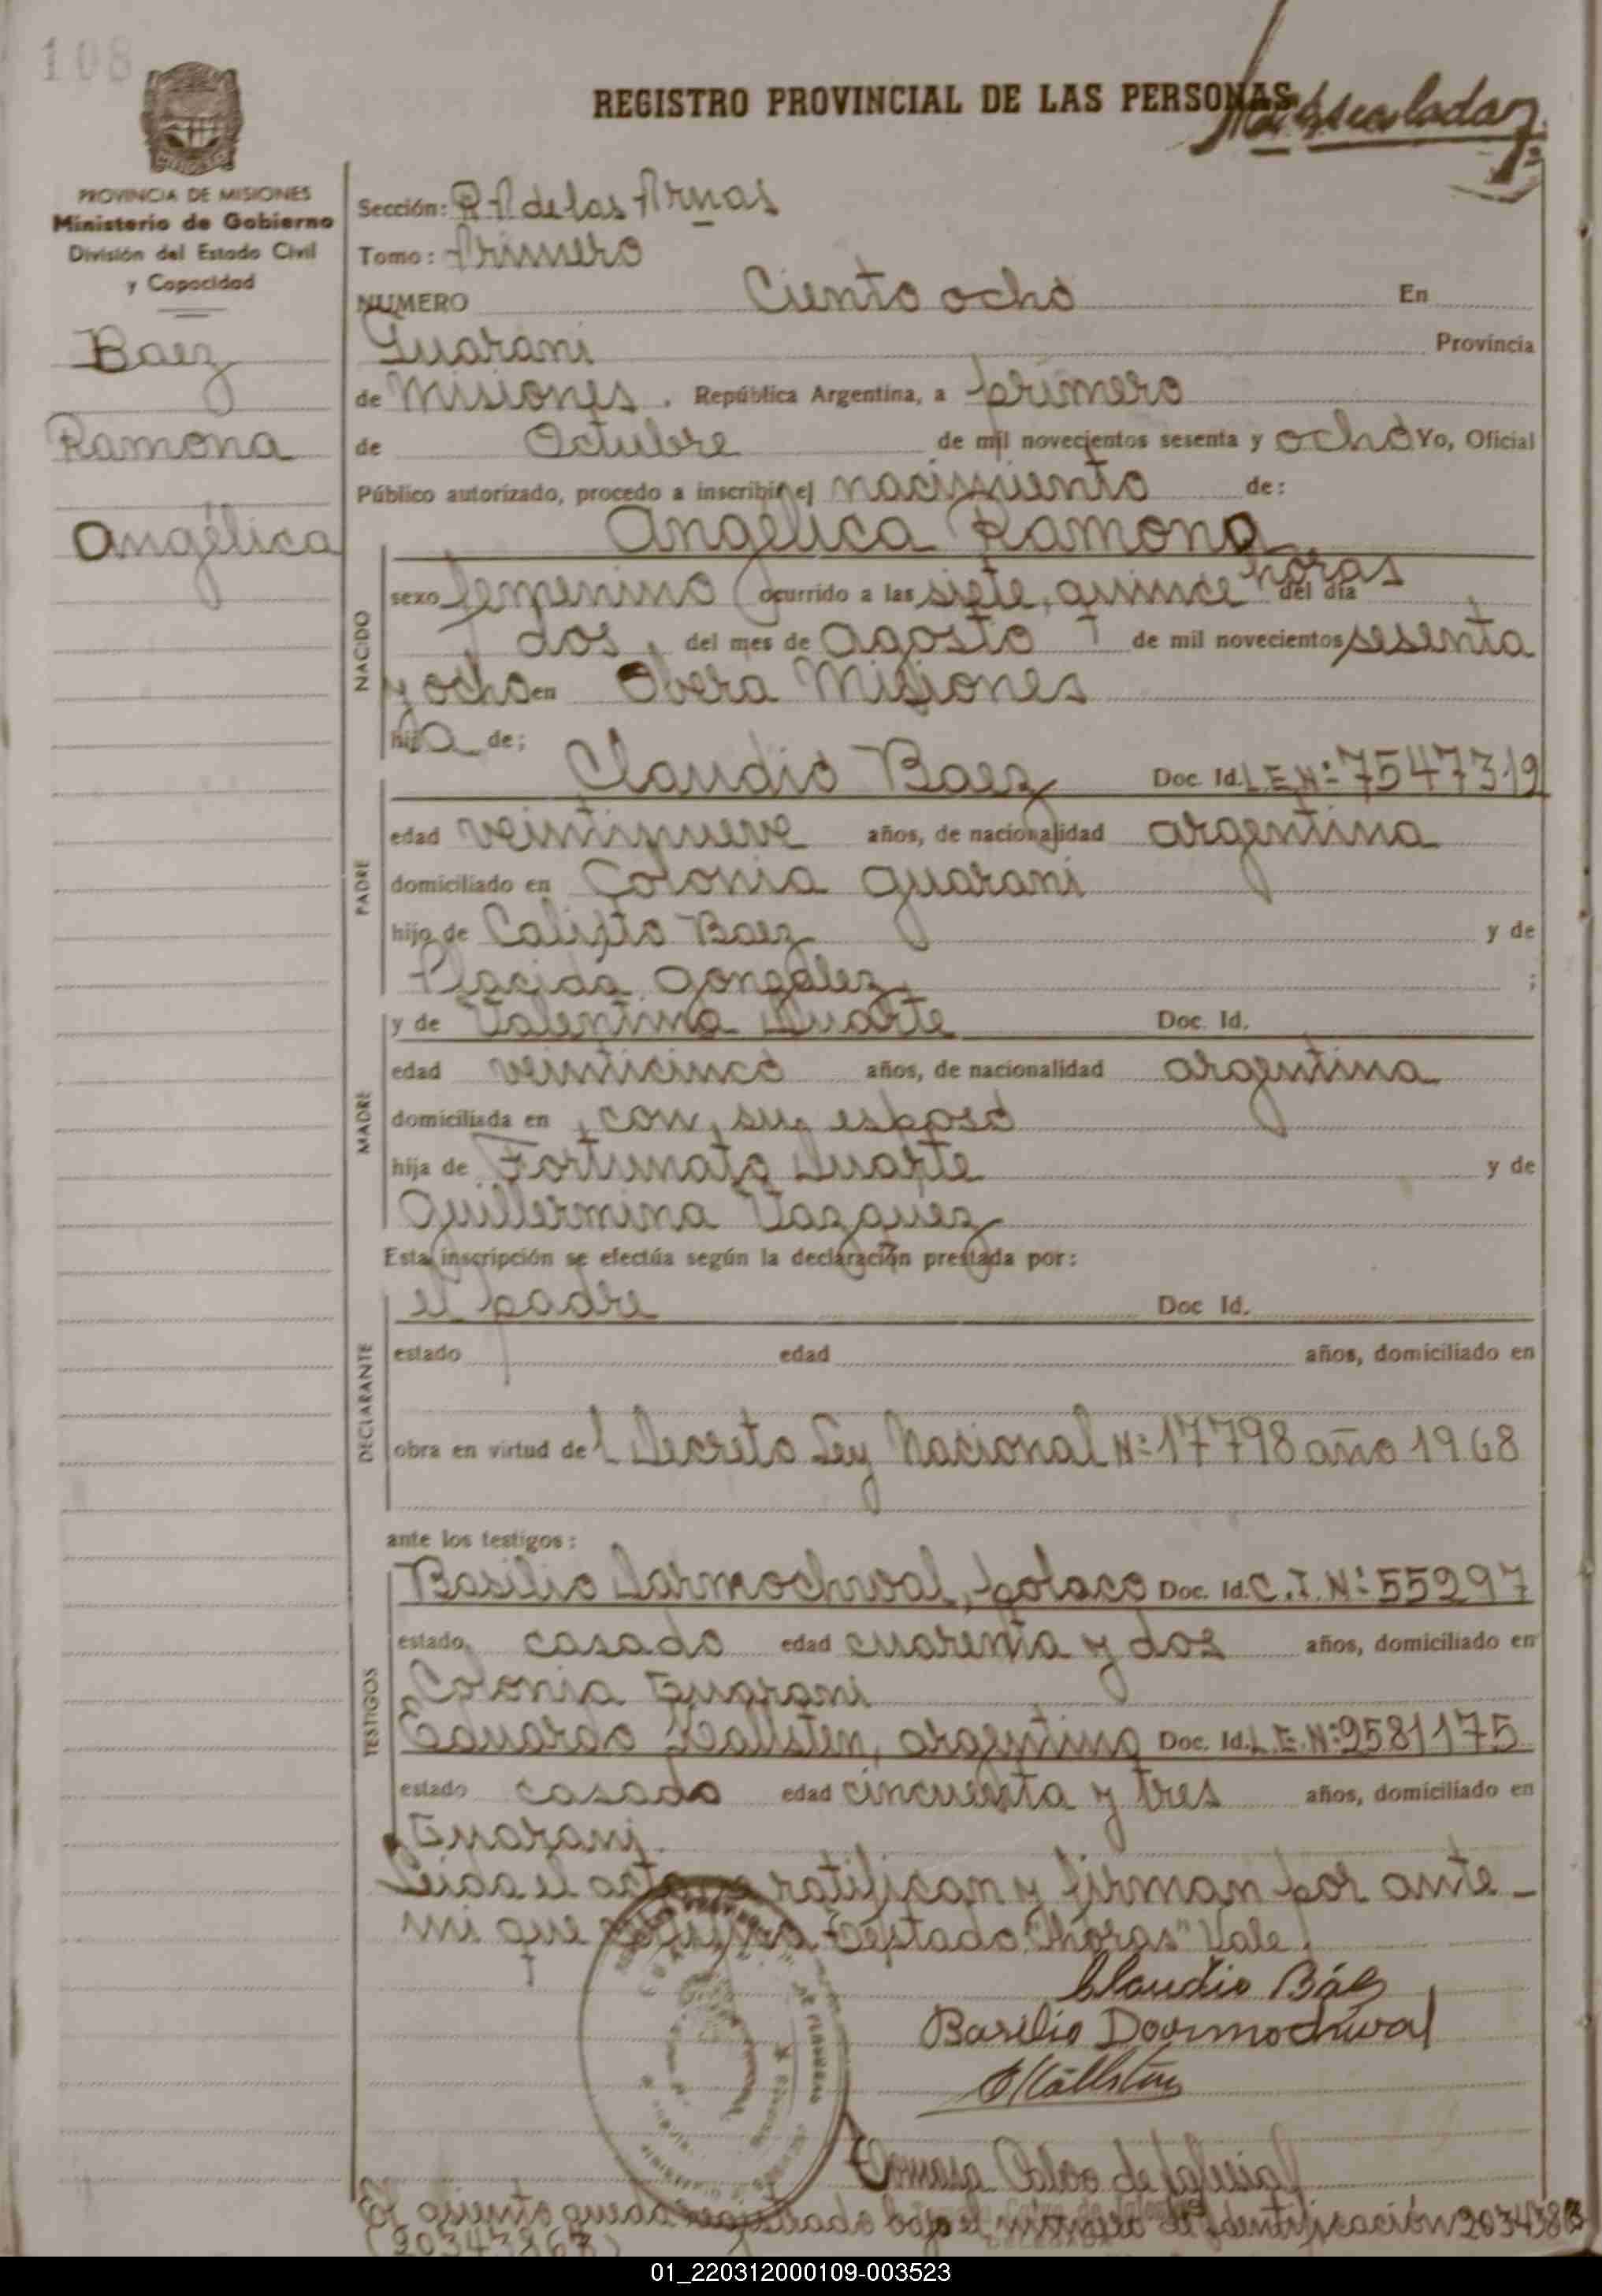 108
REGISTRO PROVINCIAL DE LAS PERSONAS
PROVINCIA DE MISIONES
Ministerio de Gobierno
División del Estado Civil
y Capacidad
Baez
Ramona
Angélica
Sección: de las Armas
Tomo: Primero
NUMERO Ciento ocho En
Guarani Provincia
de Misiones. República Argentina, a primero
de Octubre de mil novecientos sesenta y ocho Yo, Oficial
Público autorizado, procedo a inscribir el nacimiento de:
Angélica Ramona
horas
sexo femenino ocurrido a las siete, quince del día
dos, del mes de Agosto de mil novecientos sesenta
y ocho en Obera Misiones
hija de;
NACIDO
Claudio Baez Doc. Id. L.E.Nº 7547319
edad veintinueve años, de nacionalidad argentina
domiciliado en Colonia Guarani
hijo de Calixto Baez y de
Placida Gonzalez ;
PADRE
y de Valentina Duarte Doc. Id.
edad veinticinco años, de nacionalidad argentina
domiciliada en con su esposo
hija de Fortunato Duarte y de
Guillermina Vazquez
MADRE
Esta inscripción se efectúa según la declaración prestada por:
el padre Doc Id.
estado edad años, domiciliado en
obra en virtud del Decreto Ley Nacional Nº 17798 año 1968
DECLARANTE
ante los testigos:
Basilio Darmochwal, polaco Doc. Id. C.I. Nº 55297
estado casado edad cuarenta y dos años, domiciliado en
Colonia Guarani
Eduardo Kallsten, argentino Doc. Id. L.E. Nº 2581175
estado casado edad cincuenta y tres años, domiciliado en
Guarani
TESTIGOS
Leida el acta ratifican y firman por ante
mi que "horas" Vale.
Claudio Báez
Basilio Darmochwal
EKällsten
Tomasa Calvo de Iglesias
El asiento queda registrado bajo el número de identificación 20343863
(20343863)
01_220312000109-003523